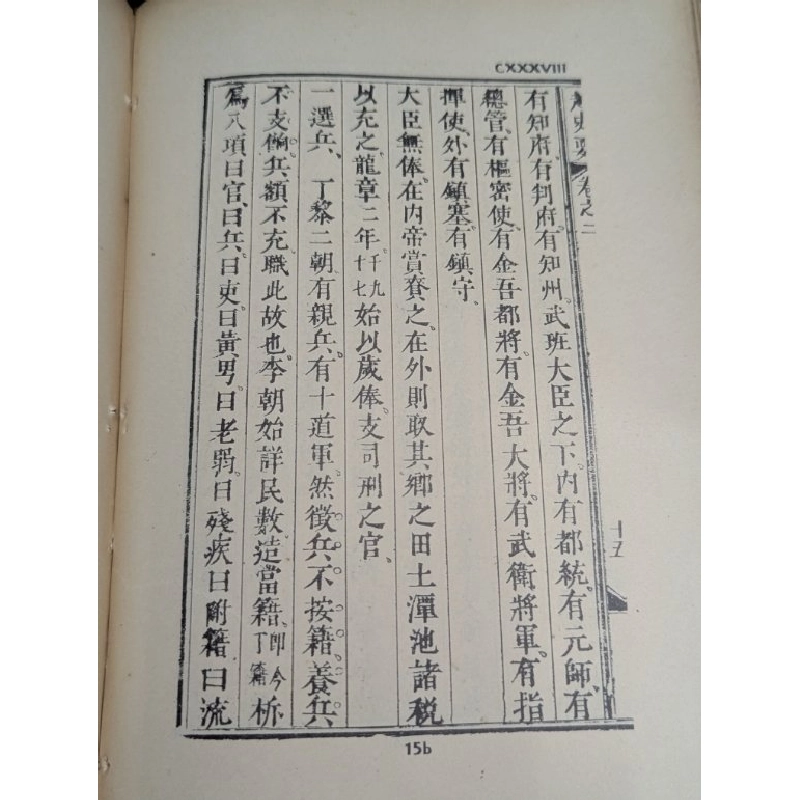 CXXXVIII
越史要 卷之二
十五
有知府。有判府。有知州。武班大臣之下。内有都統。有元師、有
總管、有樞密使、有金吾都將。有金吾大將。有武衛將軍。有指
揮使、外有鎮塞。有鎮守。
大臣無俸。在内帝賞賚之、在外則取其鄉之田土潭池諸稅
以充之。龍章二年。千九十七始以歲俸。支司刑之官、
一選兵、丁黎二朝有親兵。有十道軍。然徵兵不按籍。養兵
不支餉。兵額不充。職此故也。李朝始詳民數。造當籍。即今丁籍析
爲八項曰官、曰兵。曰吏。曰黃男。曰老弱。曰殘疾曰附籍曰流
15b